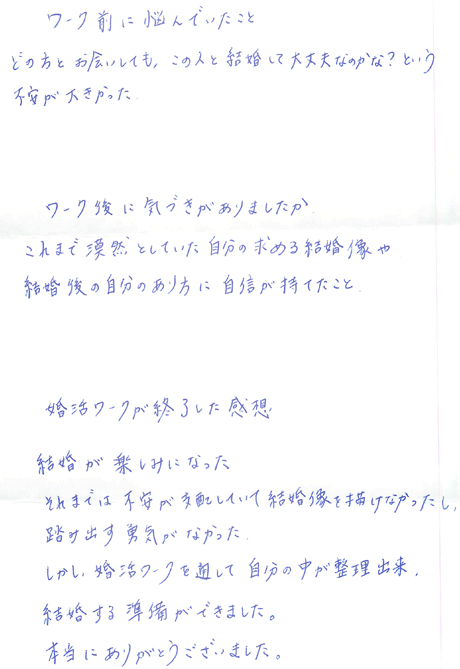 ワーク前に悩んでいたこと
どの方とお会いしても、この人と結婚して大丈夫なのかな？という
不安が大きかった.
ワーク後に気づきがありましたか.
これまで漠然としていた自分の求める結婚像や
結婚後の自分のあり方に自信が持てたこと.
婚活ワークが終了した感想
結婚が楽しみになった
それまでは不安が支配していて結婚像を描けなかったし、
踏み出す勇気がなかった.
しかし、婚活ワークを通して自分の中が整理出来、
結婚する準備ができました。
本当にありがとうございました。